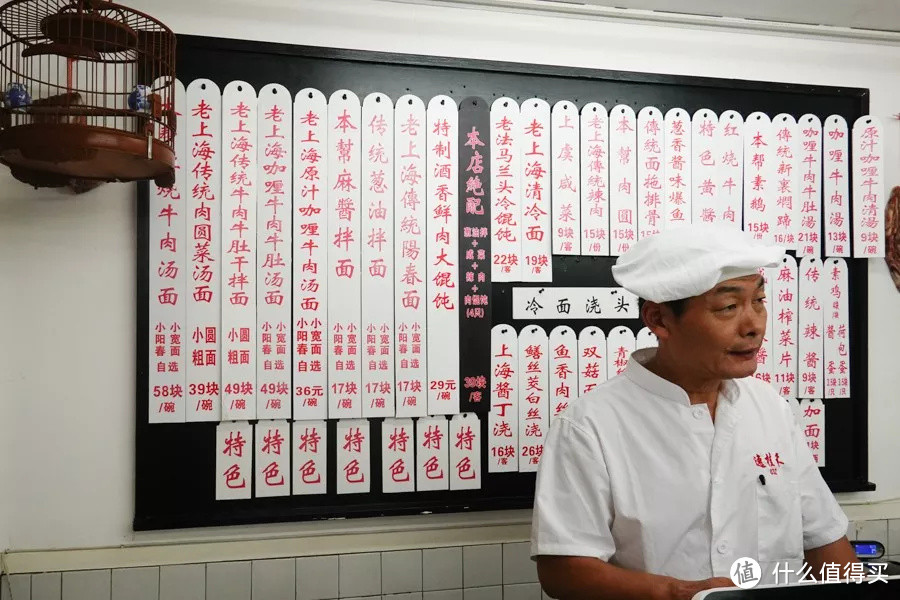 烧牛肉汤面
小阳春 小宽面自选
58块/碗
老上海传统肉圆菜汤面
小圆粗面
39块/碗
老上海传统牛肉牛肚干拌面
小圆粗面
49块/碗
老上海咖喱牛肉牛肚汤面
小阳春 小宽面自选
49块/碗
老上海原汁咖喱牛肉汤面
小阳春 小宽面自选
36元/碗
本幫麻醬拌面
小阳春 小宽面自选
17块/碗
传統蔥油拌面
小阳春 小宽面自选
17块/碗
老上海傳統陽春面
小阳春 小宽面自选
17块/碗
特制酒香鲜肉大馄饨
29元/碗
本店绝配
39块/客
老法马兰头冷馄饨
22块/客
老上海清冷面
19块/客
上虞咸菜
9块/份
老上海傳統辣肉
15块/份
本幫肉圓
15块/份
傳統面拖排骨
葱香醬味爆鱼
特色黄醬
红烧牛
本帮素鵝
15块/份
傳統新裏焖蹄
16块/份
咖喱牛肉牛肚湯
21块/碗
咖喱牛肉湯
13块/碗
原汁咖喱牛肉清湯
9块/碗
冷面浇头
上海醬丁浇
16块/客
鳝丝茭白丝
26块/客
鱼香肉
双菇
青椒
麻油榨菜片
11块/客
传统辣酱
9块/客
素鸡
荷包蛋
加面
特色
特色
特色
特色
特色
特色
特色
值 什么值得买